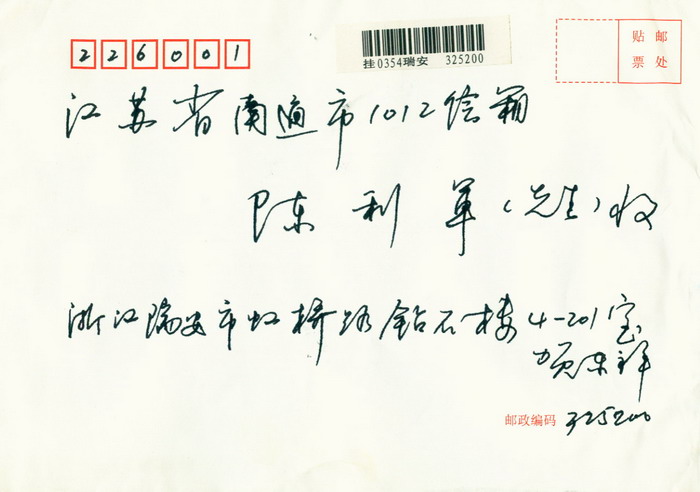 226001
挂0354瑞安 325200
贴 邮
票 处
江苏省南通市1012信箱
陈利军(先生)收
浙江瑞安市虹桥路钻石楼4-201室
项东祥
邮政编码 325200